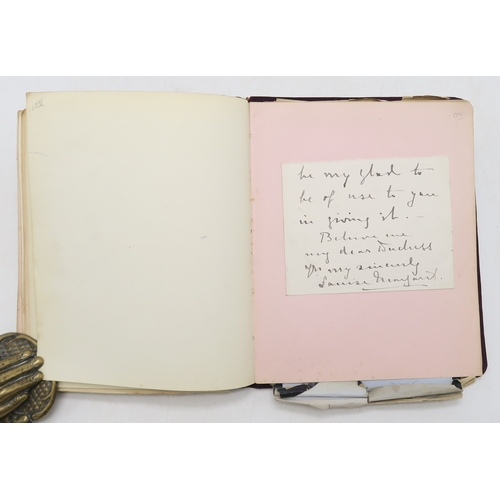 be my glad to
be of use to you
in giving it. —
Believe me
my dear Duchess
my sincerely
Louise Margaret.